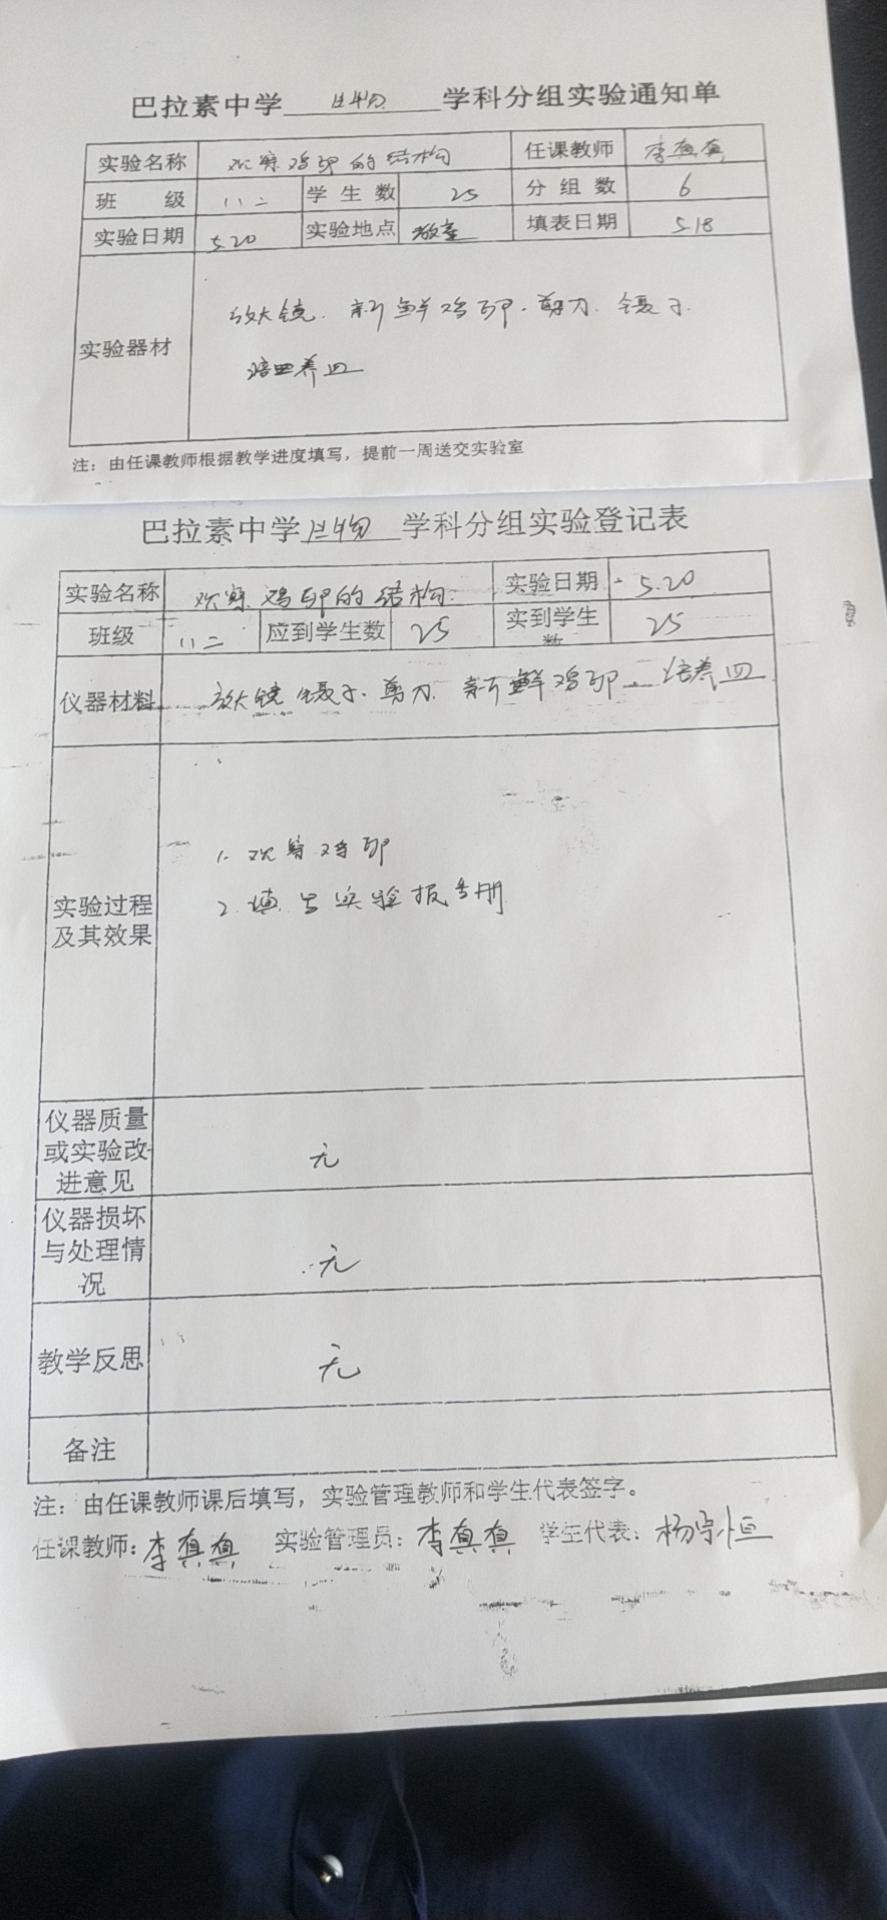 巴拉素中学 生物 学科分组实验通知单
实验名称 观察鸡卵的结构 任课教师 李真真
班级 八二 学生数 25 分组数 6
实验日期 5.20 实验地点 教室 填表日期 5.18
实验器材
放大镜. 新鲜鸡卵. 剪刀. 镊子.
培养皿
注：由任课教师根据教学进度填写，提前一周送交实验室
巴拉素中学 生物 学科分组实验登记表
实验名称 观察鸡卵的结构. 实验日期 5.20
班级 八二 应到学生数 25 实到学生数 25
仪器材料 放大镜 镊子. 剪刀. 新鲜鸡卵. 培养皿
实验过程
及其效果
1. 观察鸡卵
2. 填写实验报告册
仪器质量
或实验改
进意见
无
仪器损坏
与处理情
况
无
教学反思 无
备注
注：由任课教师课后填写，实验管理教师和学生代表签字。
任课教师：李真真 实验管理员：李真真 学生代表：杨宇恒